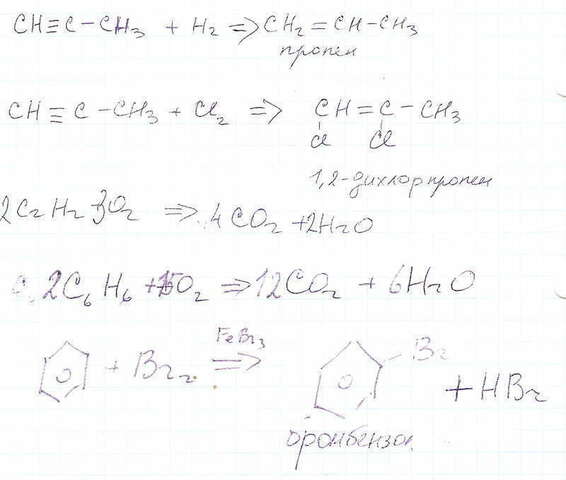 CH≡C-CH3 + H2 ⇒ CH2=CH-CH3
пропен
CH≡C-CH3 + Cl2 ⇒ CH=C-CH3
Cl Cl
1,2-дихлорпропен
2C2H2 3O2 ⇒ 4CO2 + 2H2O
2C6H6 + 15O2 ⇒ 12CO2 + 6H2O
FeBr3
+ Br2 ⇒ Br
+ HBr
бромбензол